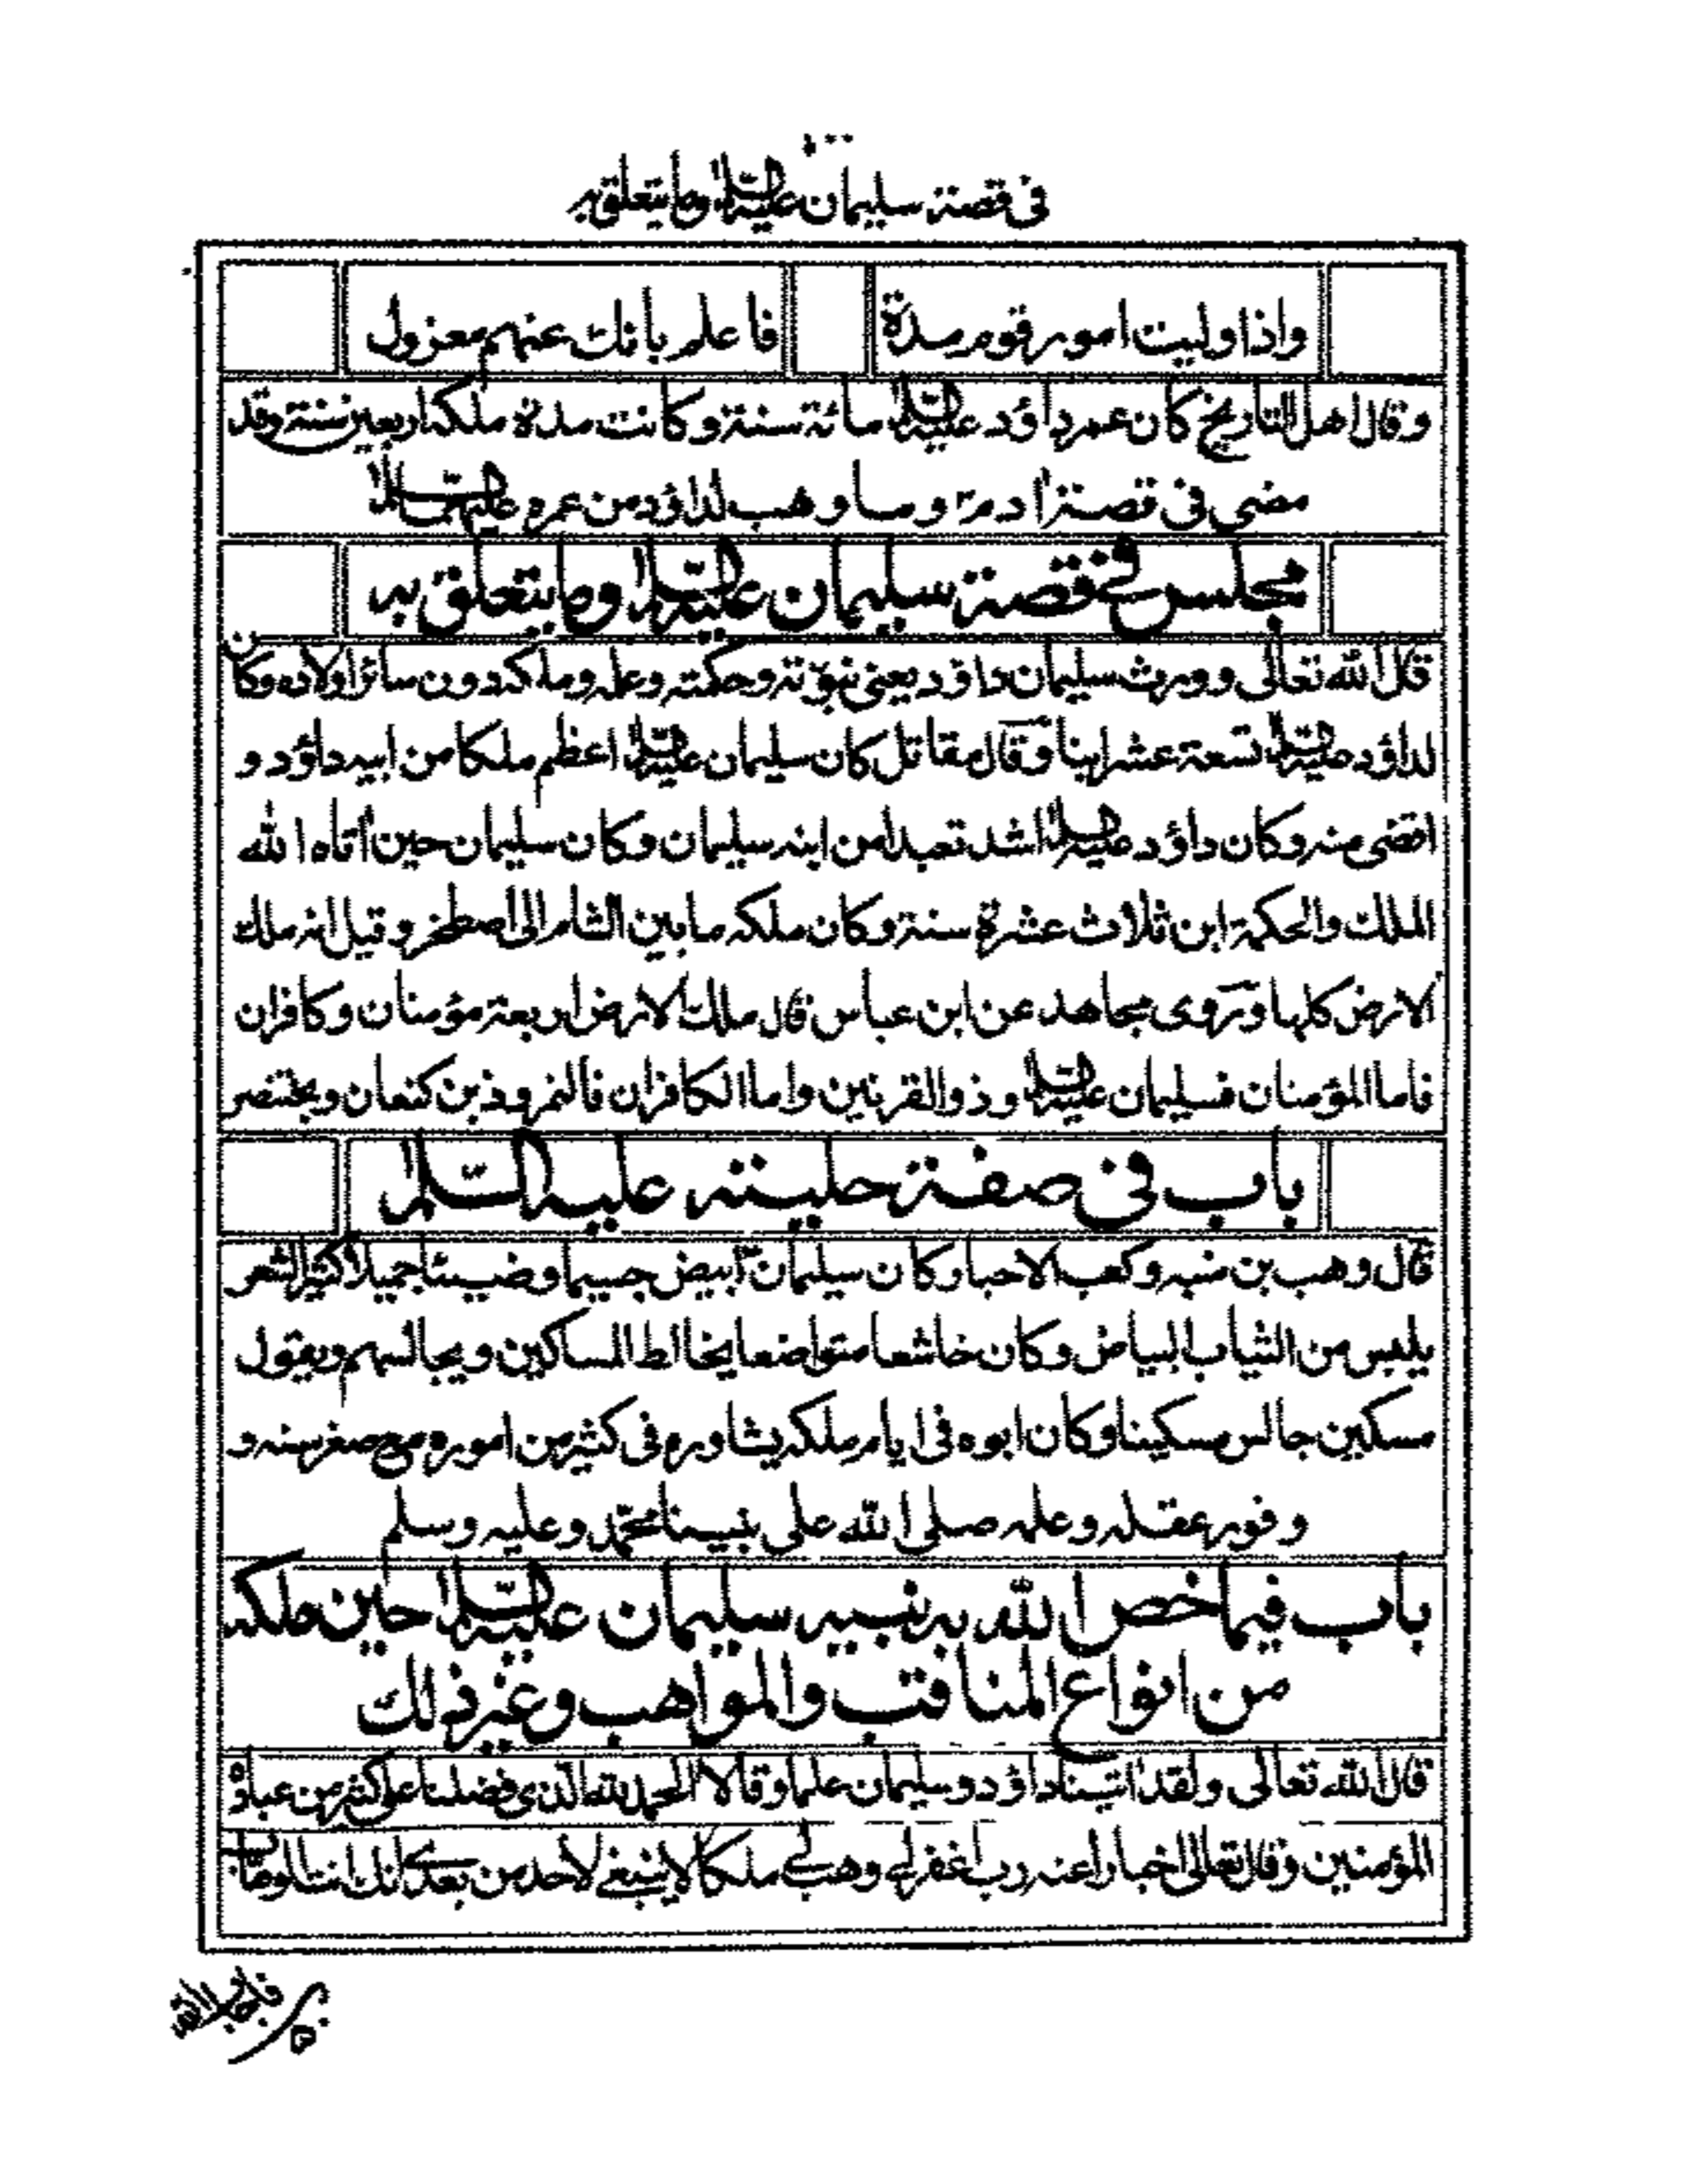 في قصة سليمان عليه السلام وما يتعلق به
واذا وليت امور قوم مدة فاعلم بانك عنهم معزول
وقال اهل التاريخ كان عمر داؤد عليه السلام مائة سنة وكانت مدة ملكه اربعين سنة وقد
مضى في قصة ادم وما وهب لداؤد من عمره عليهما السلام
مجلس في قصة سليمان عليه السلام وما يتعلق به
قال الله تعالى وورث سليمان داؤد يعني نبوته وحكمته وعلمه وملكه دون سائر اولاده وكان
لداؤد عليه السلام تسعة عشر ابنا وقال مقاتل كان سليمان عليه السلام اعظم ملكا من ابيه داؤد و
اقضى منه وكان داؤد عليه السلام اشد تعبدا من ابنه سليمان وكان سليمان حين اتاه الله
الملك والحكمة ابن ثلاث عشرة سنة وكان ملكه ما بين الشام الى اصطخر وقيل انه ملك
الارض كلها وروى مجاهد عن ابن عباس قال ملك الارض اربعة مؤمنان وكافران
فاما المؤمنان فسليمان عليه السلام وذوالقرنين واما الكافران فالنمروذ بن كنعان وبختنصر
باب في صفة حليته عليه السلام
قال وهب بن منبه وكعب الاحبار كان سليمان ابيض جسيما وضيئا جميلا كثير الشعر
يلبس من الثياب البياض وكان خاشعا متواضعا يخالط المساكين ويجالسهم ويقول
مسكين جالس مسكينا وكان ابوه في ايام ملكه يشاوره في كثير من اموره مع صغر سنه و
وفور عقله وعلمه صلى الله على نبينا محمد وعليه وسلم
باب فيما خص الله به نبيه سليمان عليه السلام حين ملكه
من انواع المناقب والمواهب وغير ذلك
قال الله تعالى ولقد اتينا داؤد وسليمان علما وقالا الحمد لله الذي فضلنا على كثير من عباده
المؤمنين وقال تعالى اخبارا عنه رب اغفر لي وهب لي ملكا لا ينبغي لاحد من بعدي انك انت الوهاب